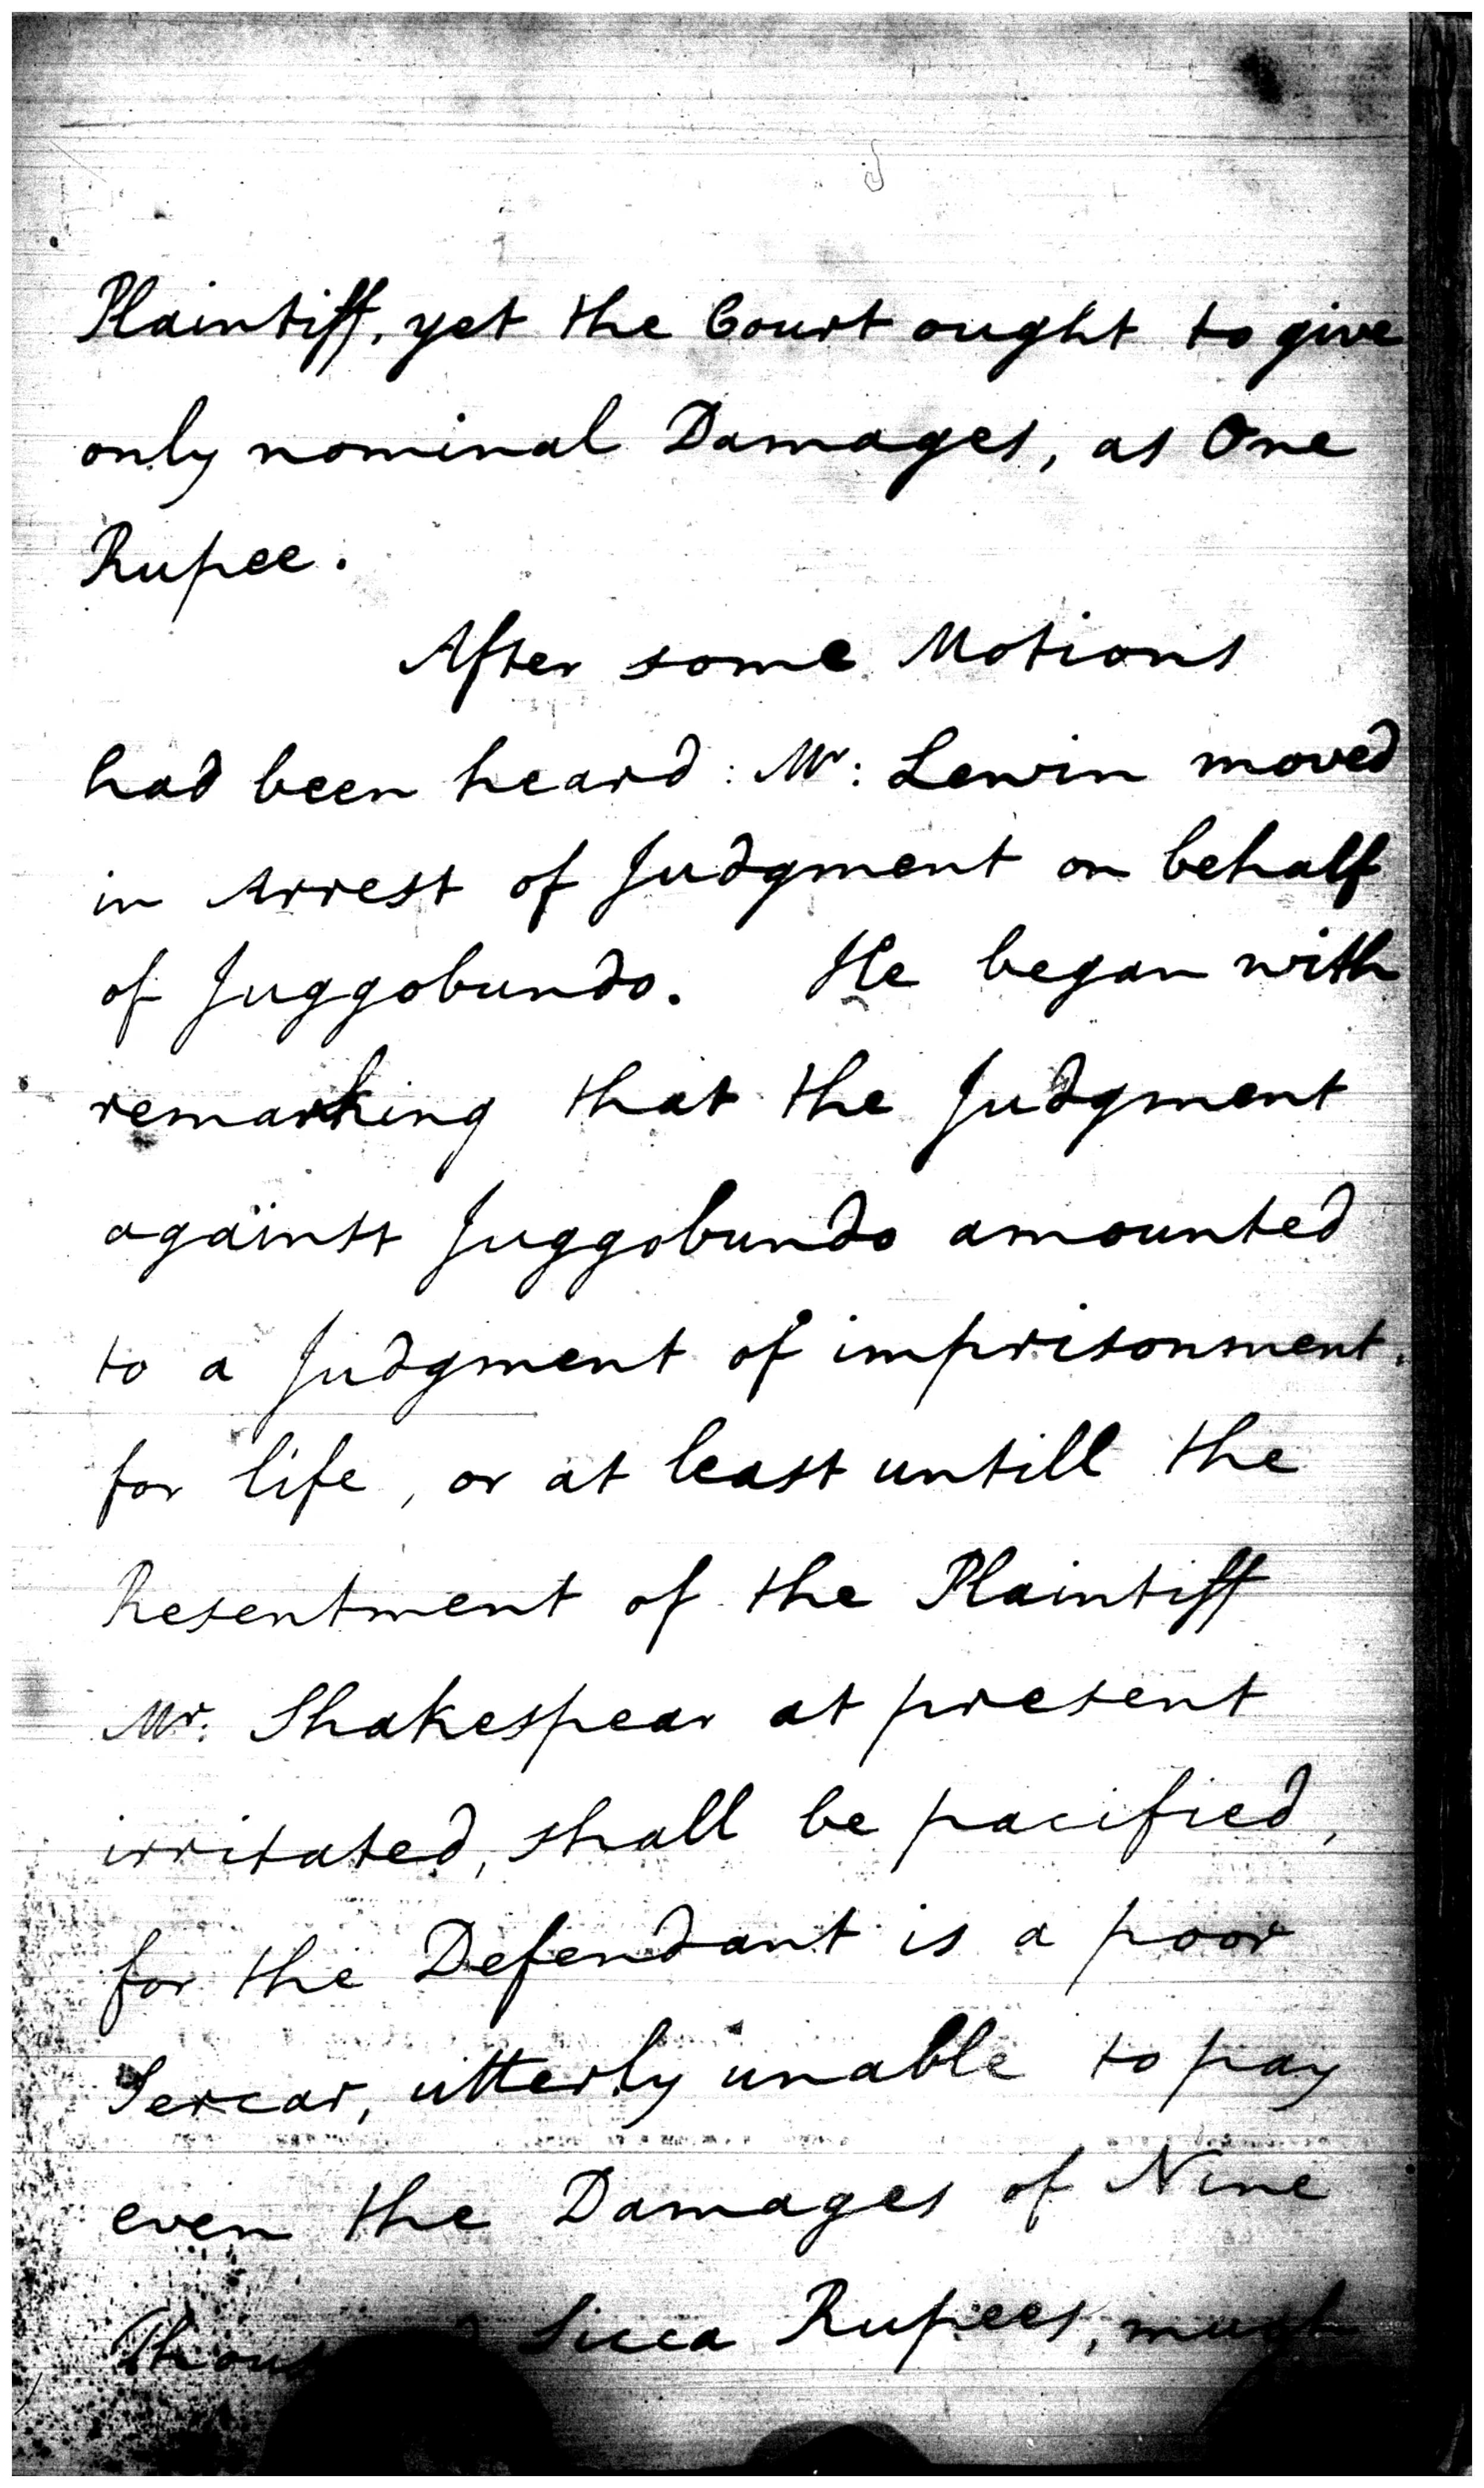 Plaintiff, yet the Court ought to give
only nominal Damages, as One
Rupee.
After some Motions
had been heard: Mr: Lewin moved
in Arrest of Judgment on behalf
of Juggobundo. He began with
remarking that the Judgment
against Juggobundo amounted
to a Judgment of imprisonment.
for life, or at least untill the
Resentment of the Plaintiff
Mr: Shakespear at present
irritated, shall be pacified,
for the Defendant is a poor
Sercar, utterly unable to pay
even the Damages of Nine
Sicca Rupees, much